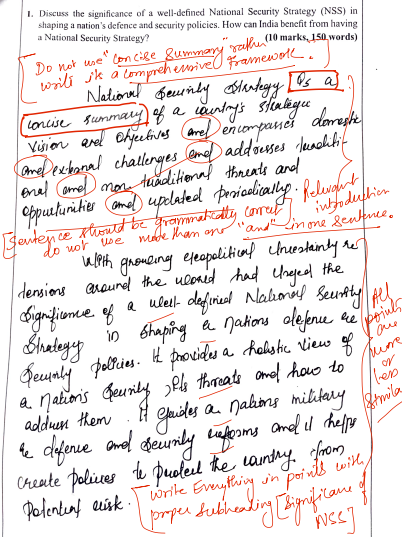 1. Discuss the significance of a well-defined National Security Strategy (NSS) in
shaping a nation's defence and security policies. How can India benefit from having
a National Security Strategy? (10 marks, 150 words)
Do not use "concise summary" rather
write its a comprehensive framework.
National Security Strategy is a
concise summary of a country's strategic
vision and objectives and encompasses domestic
and external challenges and addresses traditi-
onal and non traditional threats and
oppurtunities and updated periodically.
Relevant
introduction
[Sentence should be grammatically correct
do not use more than one "and" in one sentence.
With growing geopolitical Uncertainty &
tensions around the world had Urged the
Significance of a well-defined National Security
Strategy in shaping a Nations defence &
Security policies. It provides a holistic view of
a Nation's Security, Its threats and how to
address them. It guides a Nations military
& defence and Security reforms and it helps
create policies to protect the country from
Potential risk.
All
points
are
more
or
less
similar
[Write Everything in points with
proper subheading [Significance of
NSS]